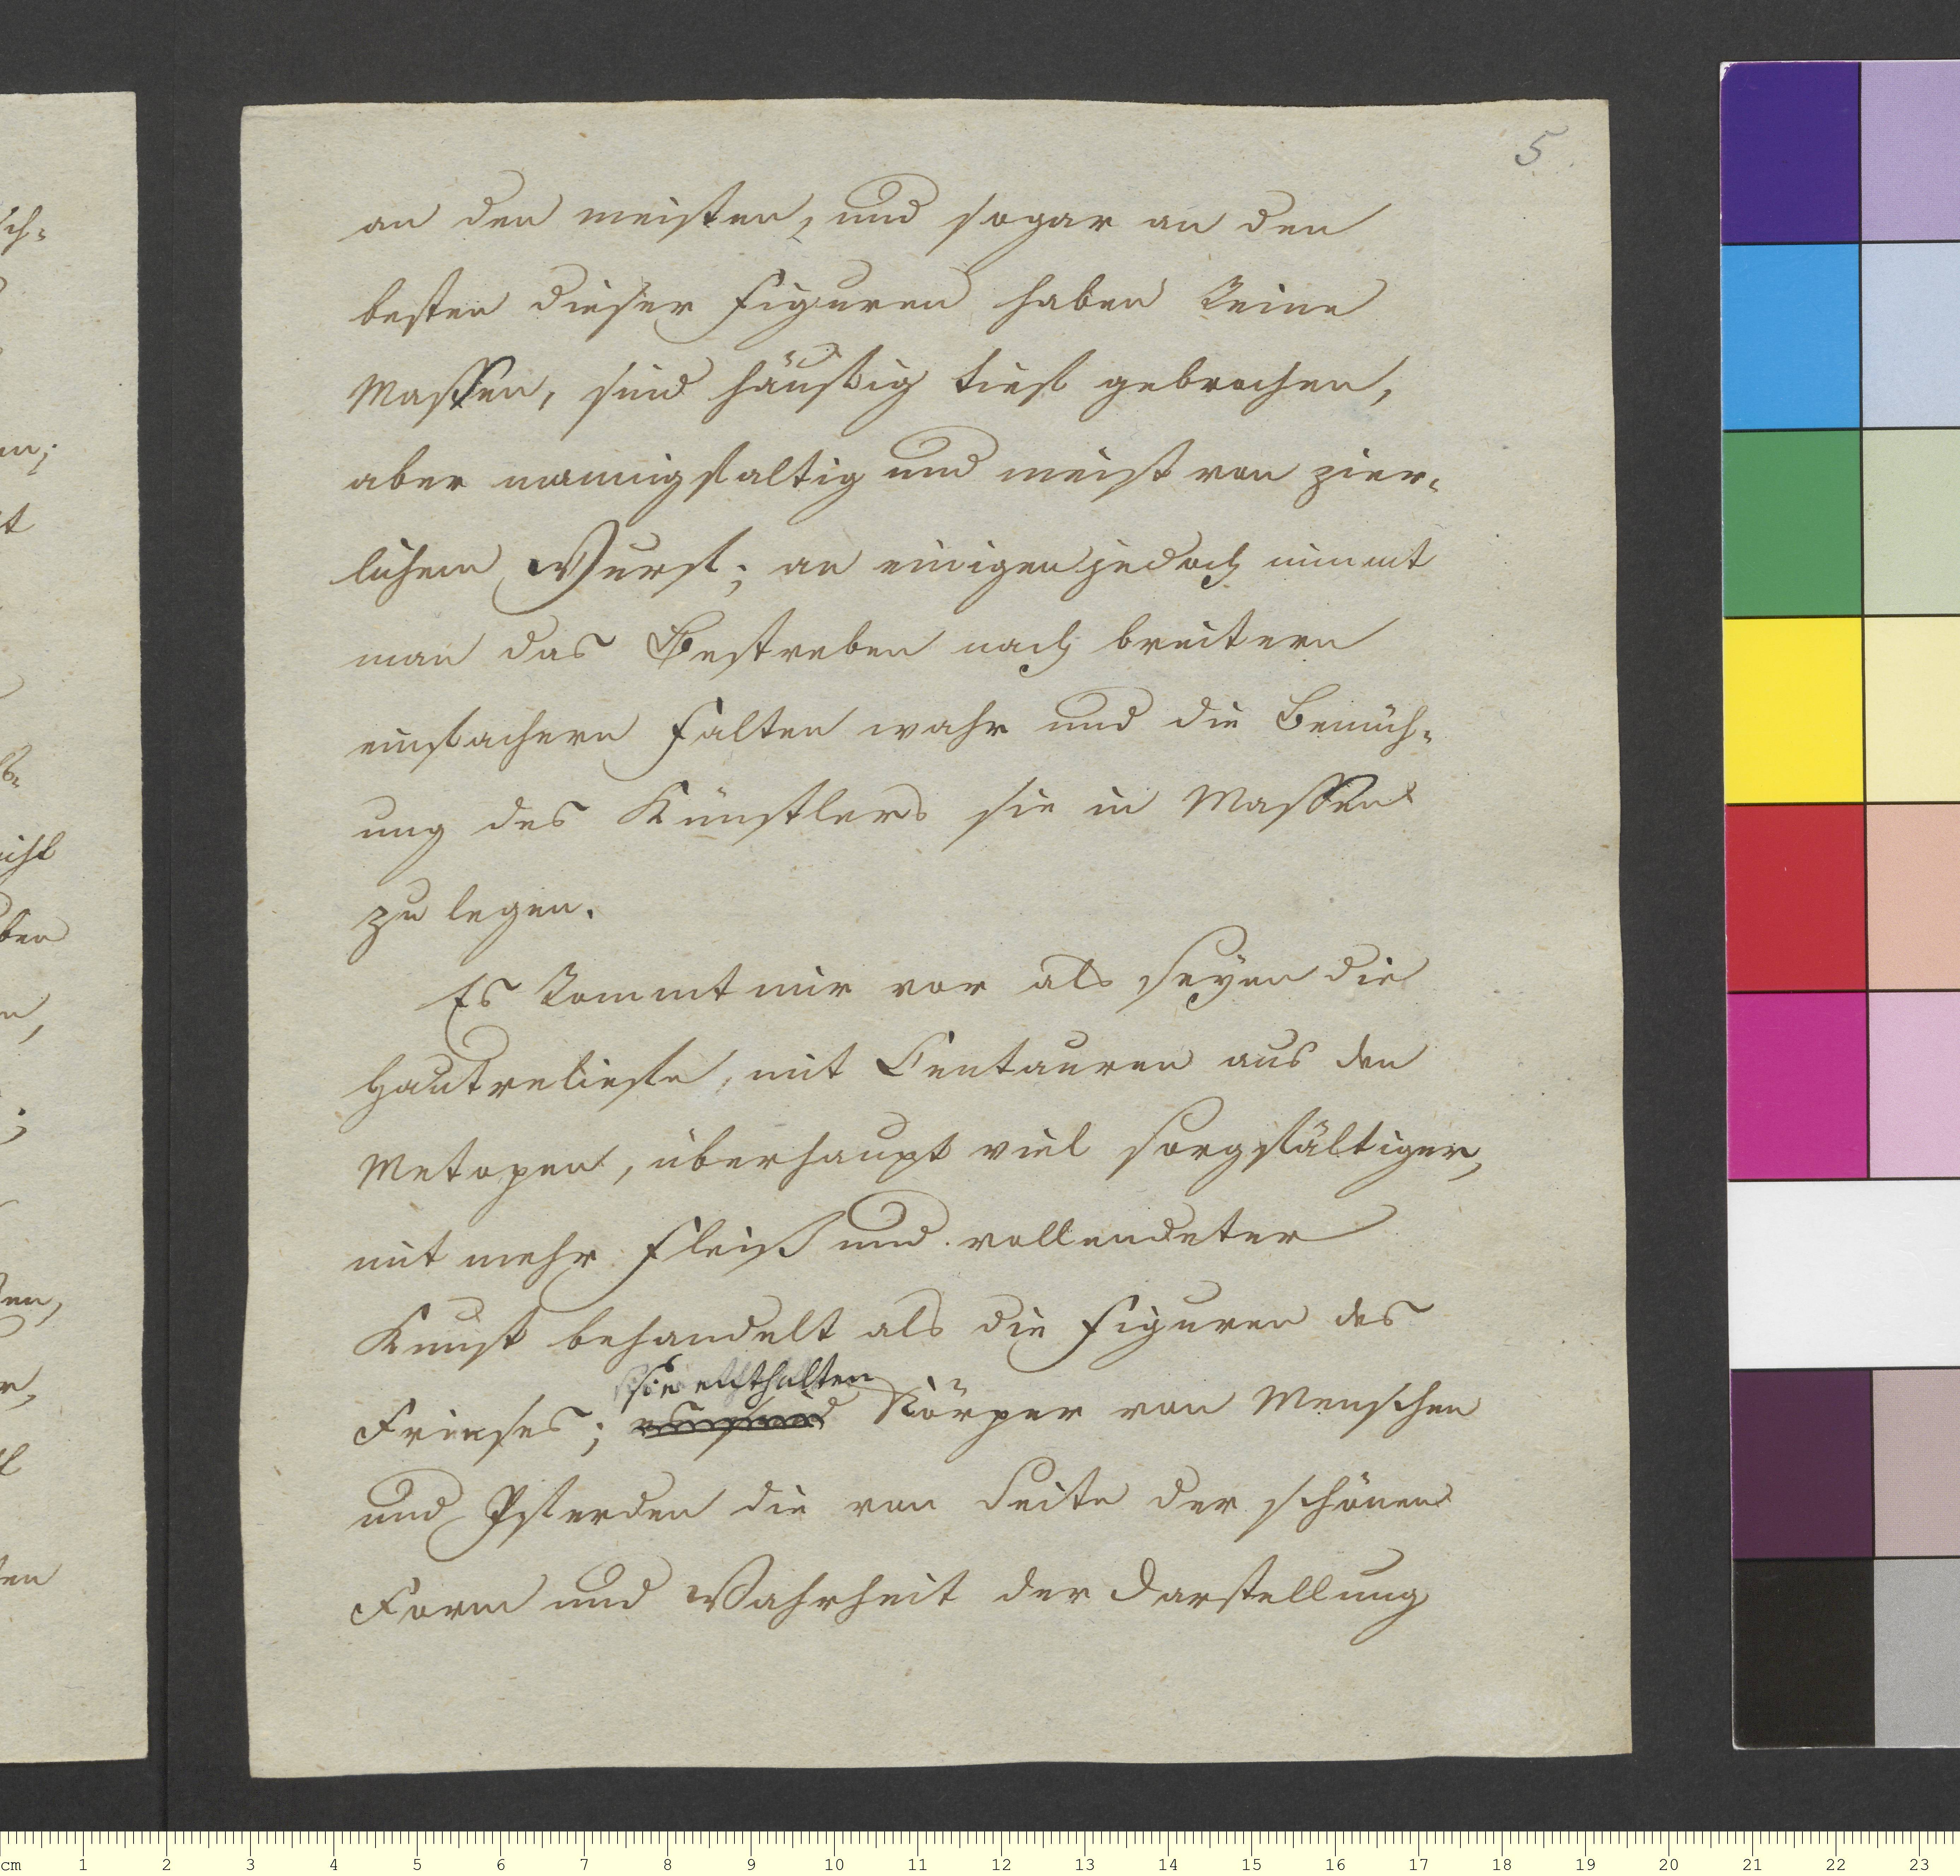 5.
an den meisten, und sogar an den
besten dieser Figuren haben keine
Massen, sind häufig tief gebrochen,
aber mannigfaltig und meist von zier-
lichem Wurf; an einigen jedoch nimmt
man das Bestreben nach breitern
einfachern Falten wahr und die Bemüh-
ung des Künstlers sie in Massen
zu legen.
Es kommt mir vor als seyen die
Hautreliefe, mit Centauren aus den
Metopen, überhaupt viel sorgfältiger,
mit mehr Fleiß und vollendeter
Kunst behandelt als die Figuren des
sie enthalten
Frieses; es sind Körper von Menschen
und Pferden die von Seite der schönen
Form und Wahrheit der Darstellung
cm 1 2 3 4 5 6 7 8 9 10 11 12 13 14 15 16 17 18 19 20 21 22 23